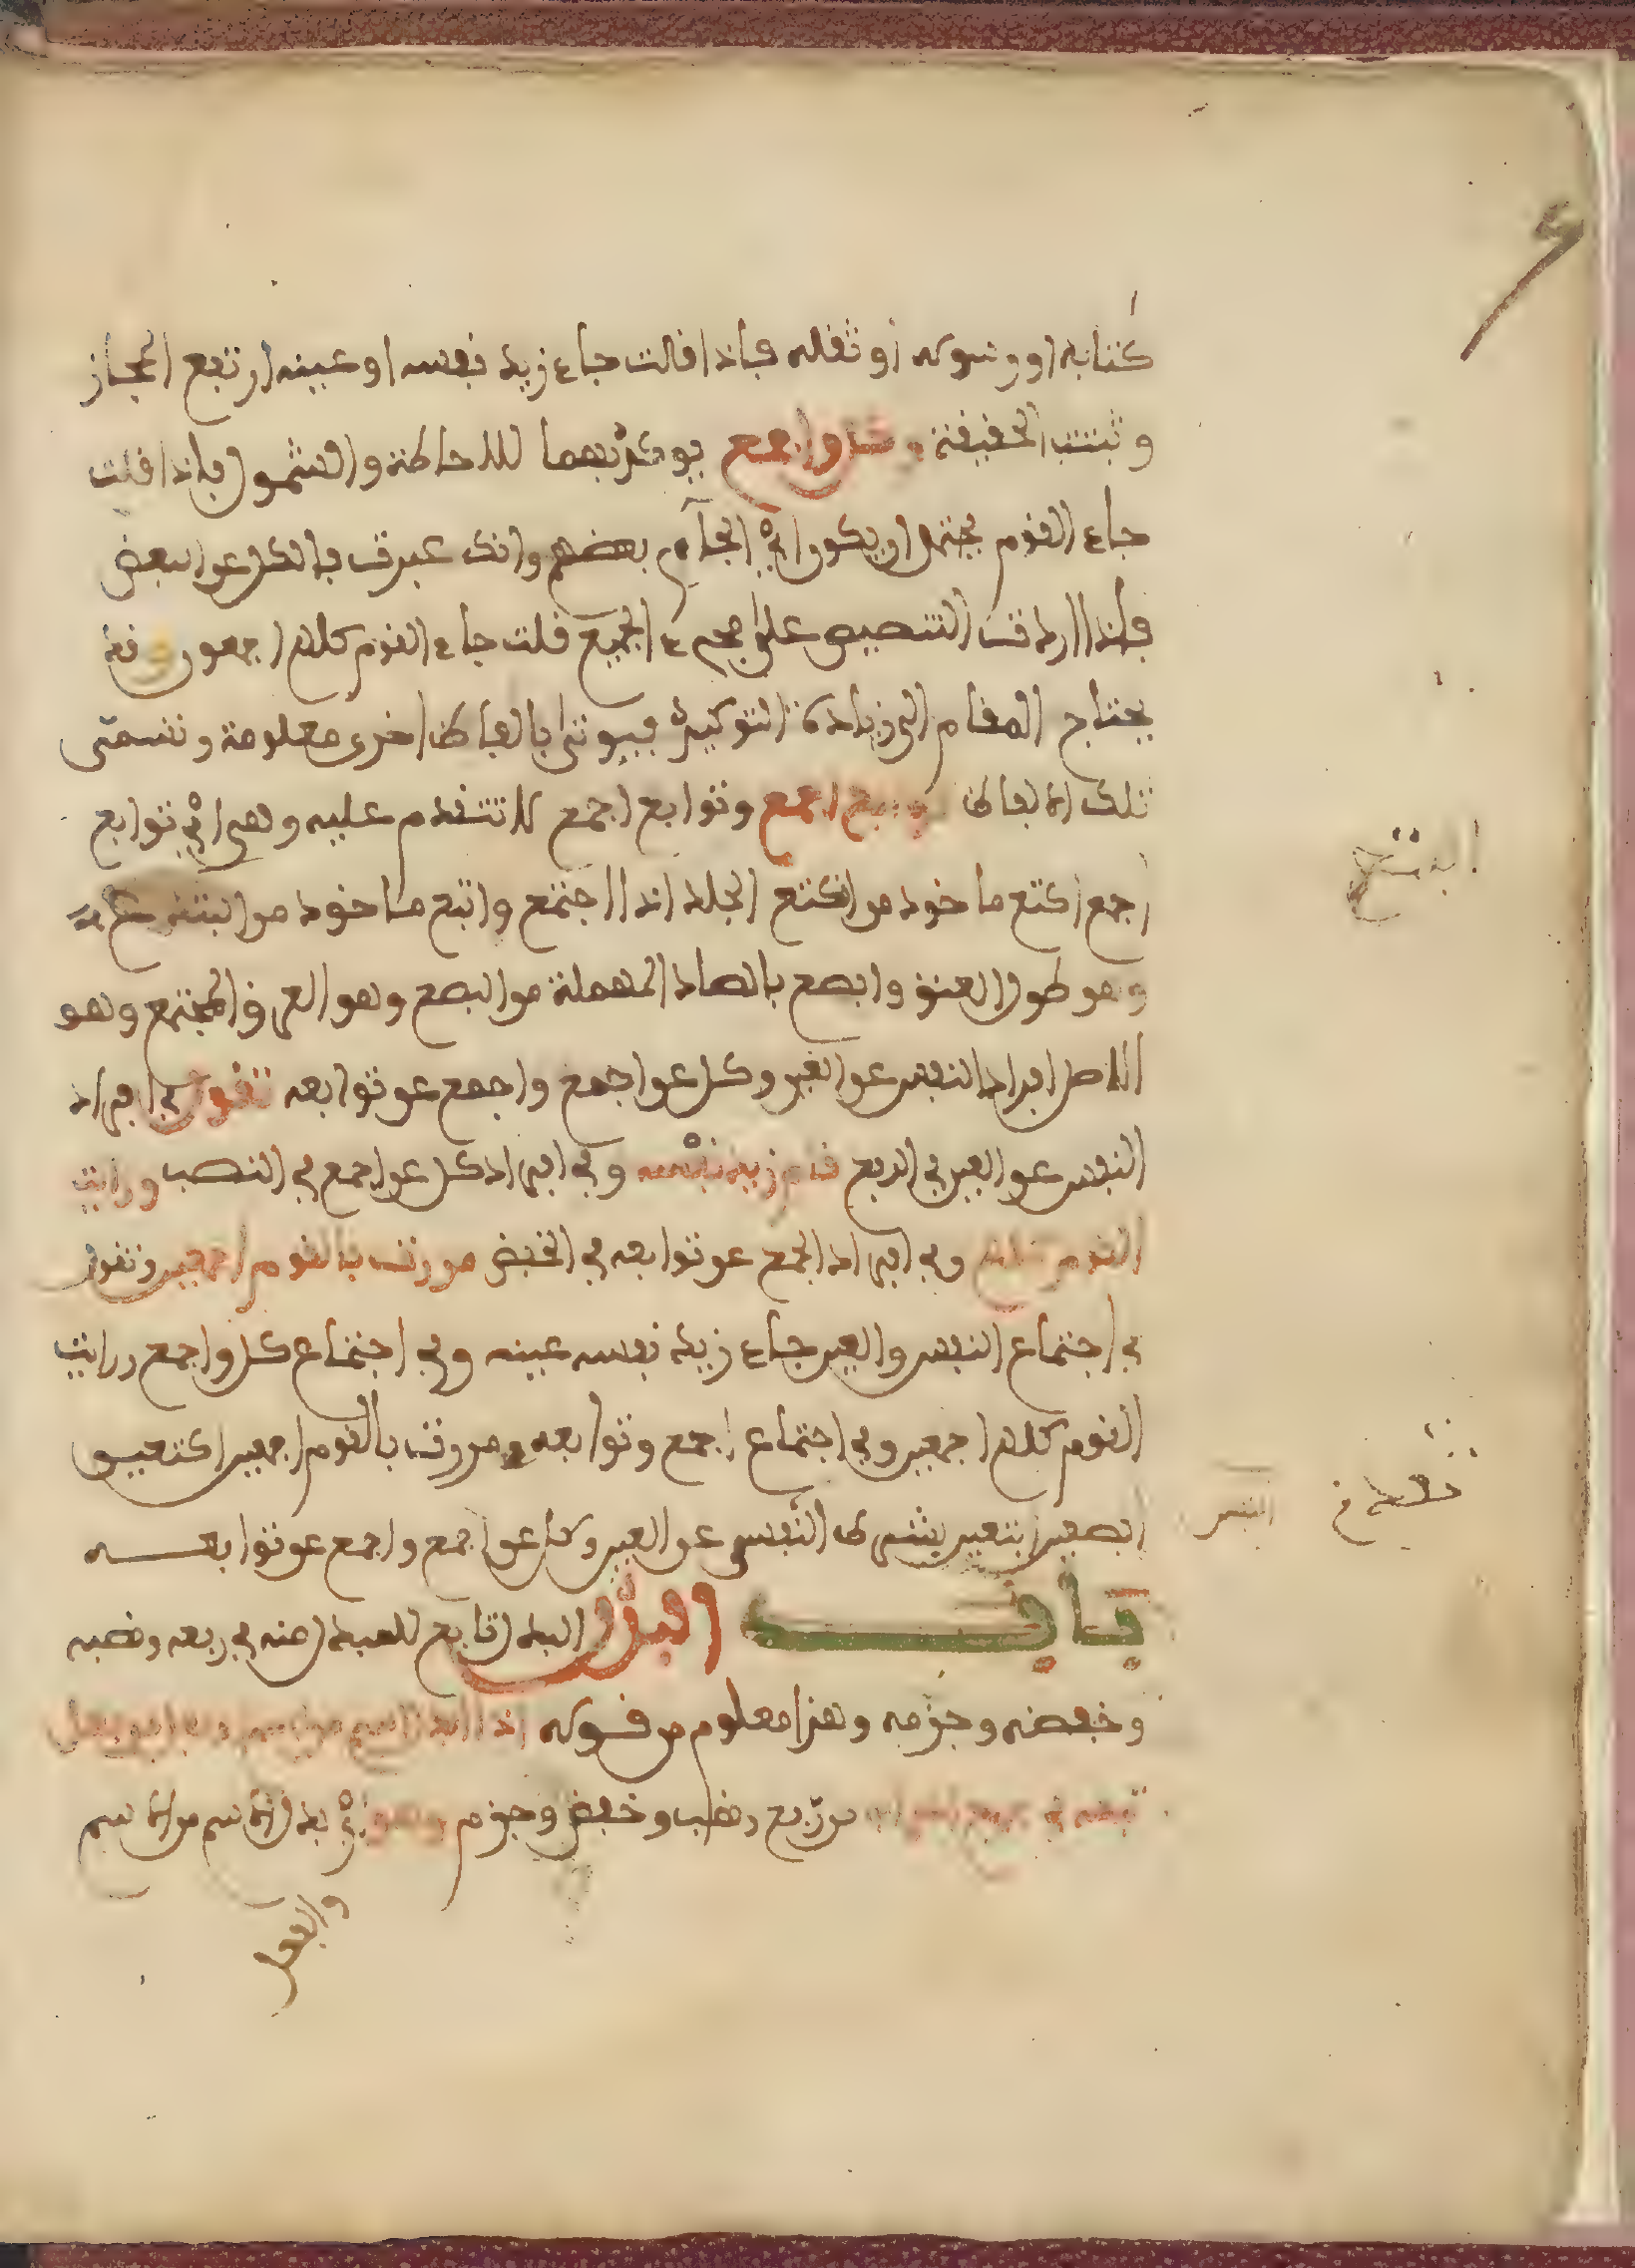 كتابه او رسوله او ثقله فاذا قلت جاء زيد نفسه او عينه ارتفع المجاز
وثبتت الحقيقة وكل واجمع يوكد بهما للاحاطة والشمول فاذا قلت
جاء القوم يحتمل ان يكون الجآءي بعضهم وانك عبرت بالكل عن البعض
فاذا اردت التنصيص على مجيء الجميع قلت جاء القوم كلهم اجمعون وقد
يحتاج المقام الى زيادة التوكيد فيوتى بالفاظ اخرى معلومة وتسمى
تلك الالفاظ توابع اجمع وتوابع اجمع لا تتقدم عليه وهي اي توابع
اجمع اكتع ماخوذ من تكتع الجلد اذا اجتمع وابتع ماخوذ من البتع
وهو طول العنق وابصع بالصاد المهملة من البصع وهو العرق المجتمع وهو
الاصل افراد النفس عن العين وكل عن اجمع واجمع عن توابعه تقول في افراد
النفس عن العين في الرفع قام زيد نفسه وفي افراد كل عن اجمع في النصب ورايت
القوم كلهم وفي افراد اجمع عن توابعه في الخفض مررت بالقوم اجمعين وتقول
في اجتماع النفس والعين جاء زيد نفسه عينه وفي اجتماع كل واجمع رايت
القوم كلهم اجمعين وفي اجتماع اجمع وتوابعه مررت بالقوم اجمعين اكتعين
ابصعين ابتعين بشرط النفس عن العين وكل عن اجمع واجمع عن توابعه
باب البدل البدل تابع للمبدل منه في رفعه ونصبه
وخفضه وجزمه وهذا معلوم من قوله اذا ابدل اسم من اسم او فعل من فعل
تبعه في جميع اعرابه من رفع ونصب وخفض وجزم وهو اي بدل الاسم من الاسم
والفعل
البتع
تقديم
النفس